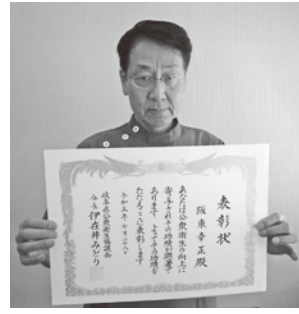 表彰状
阪東幸正殿
あなたは公衆衛生の向上に
寄与されその功績が顕著で
あります よってその功績を
たたえここに表彰します
令和五年七月二十八日
岐阜県公衆衛生協議会
会長 伊在井みどり